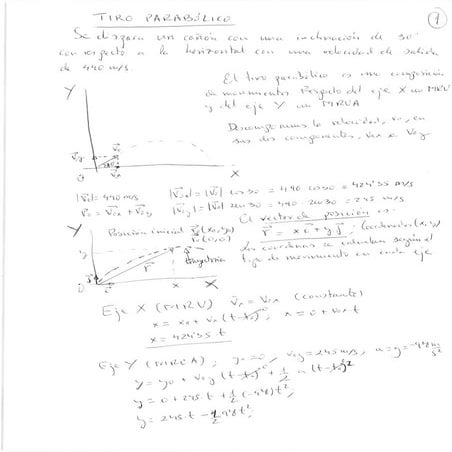 TIRO PARABÓLICO
1
Se dispara un cañón con una inclinación de 30°
con respecto a la horizontal con una velocidad de salida
de 490 m/s.
El tiro parabólico es una composición
de movimientos. Respecto del eje X un MRU
y del eje Y un MRUA
Descomponemos la velocidad, v0, en
sus dos componentes, v0x e v0y
Y
X
|V0| = 490 m/s
V0 = V0x + V0y
|V0x| = |V0| cos 30 = 490 cos 30 = 424'35 m/s
|V0y| = |V0| sen 30 = 490 · sen 30 = 245 m/s
El vector de posición es:
r = x i + y j
Coordenadas (x, y)
Las coordenadas se calculan según el
tipo de movimiento en cada eje
Posición inicial P0 (x0, y0)
P0 (0, 0)
Y
y
r
trayectoria
0
x
X
Eje X (MRU) Vx = V0x (constante)
x = x0 + V0x (t - t0); x = 0 + V0x t
x = 424'35 t
Eje Y (MRUA); y0 = 0, V0y = 245 m/s, a = g = -9'8 m/s²
y = y0 + V0y (t - t0) + 1/2 a (t - t0)²
y = 0 + 245 · t + 1/2 (-9'8) t²;
y = 245 t - 1/2 9'8 t²;